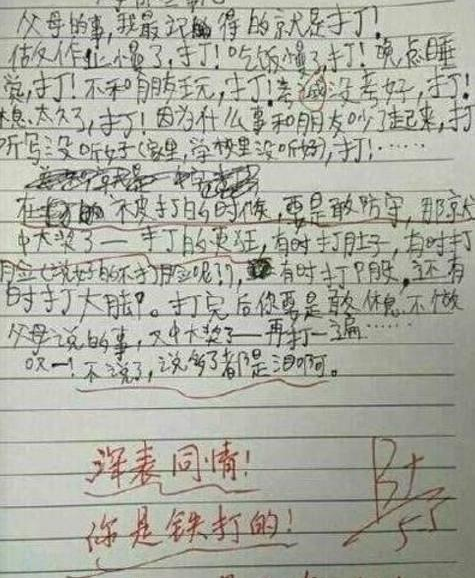 父母的事,我最记的得的就是打!
做作业慢了,打!吃饭慢了,打!晚点睡
觉,打!不和朋友玩,打!考试没考好,打!
息太久了,打!因为什么事和朋友吵了起来,打
听写没听好(家里,学校里没听好),打!……
在 被打的时候,要是敢防守,那就
中大奖了——打的更狂,有时打肚子,有时打
脸(说好的不打脸呢?),有时打腿,还有
时打大腿。打完后你要是敢休息不做
父母说的事,又中大奖了——再打一遍……
哎—!不说了,说多了都是泪啊。
深表同情!
你是铁打的!
B+